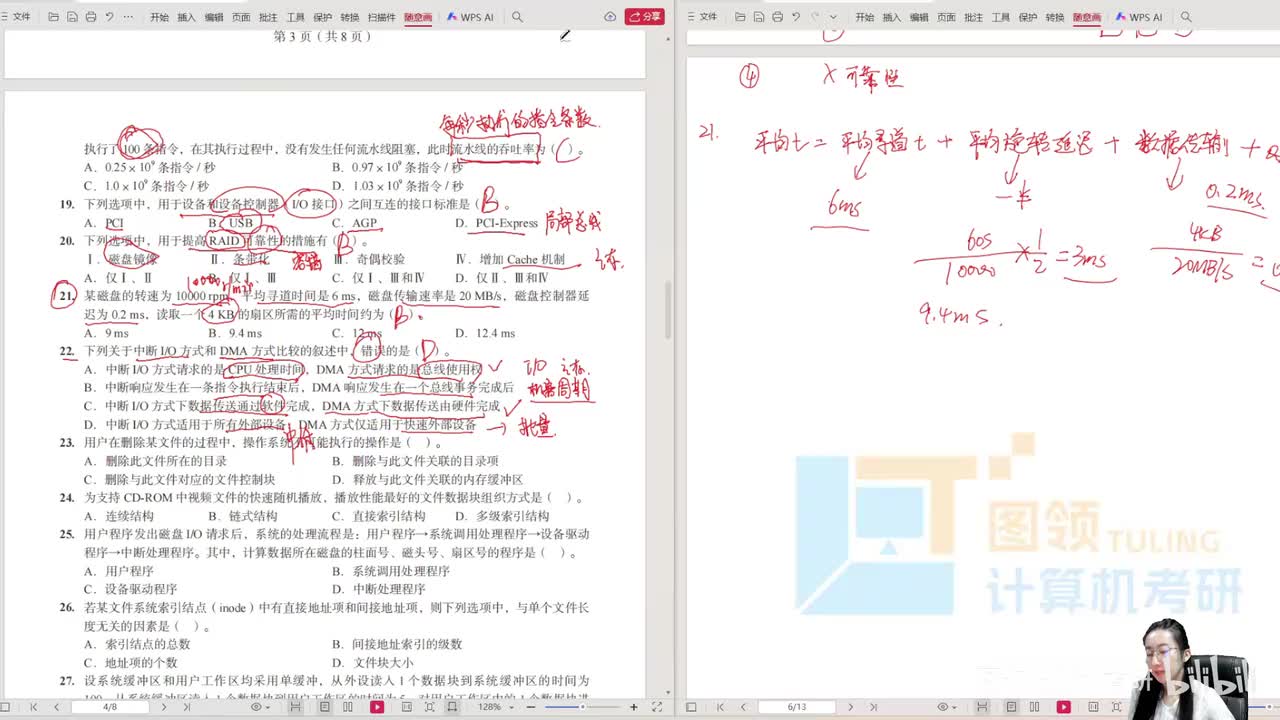 文件 开始 插入 编辑 页面 批注 工具 保护 转换 扫描件 随意画 WPS AI 分享
第 3 页（共 8 页）
每秒执行的指令条数
执行了 100 条指令，在其执行过程中，没有发生任何流水线阻塞，此时流水线的吞吐率为（ C ）。
A．0.25×10⁹ 条指令 / 秒 B．0.97×10⁹ 条指令 / 秒
C．1.0×10⁹ 条指令 / 秒 D．1.03×10⁹ 条指令 / 秒
19. 下列选项中，用于设备和设备控制器（I/O 接口）之间互连的接口标准是（ B ）。
A．PCI B．USB C．AGP D．PCI-Express 局部总线
20. 下列选项中，用于提高 RAID 可靠性的措施有（ B ）。
Ⅰ．磁盘镜像 Ⅱ．条带化 Ⅲ．奇偶校验 Ⅳ．增加 Cache 机制 主存
A．仅Ⅰ、Ⅱ B．仅Ⅰ、Ⅲ C．仅Ⅰ、Ⅲ和Ⅳ D．仅Ⅱ、Ⅲ和Ⅳ
21. 某磁盘的转速为 10000 rpm，平均寻道时间是 6 ms，磁盘传输速率是 20 MB/s，磁盘控制器延
迟为 0.2 ms，读取一个 4 KB 的扇区所需的平均时间约为（ B ）。
A．9 ms B．9.4 ms C．12 ms D．12.4 ms
22. 下列关于中断 I/O 方式和 DMA 方式比较的叙述中，错误的是（ D ）。
A．中断 I/O 方式请求的是 CPU 处理时间，DMA 方式请求的是总线使用权 I/O 主存
B．中断响应发生在一条指令执行结束后，DMA 响应发生在一个总线事务完成后 机器周期
C．中断 I/O 方式下数据传送通过软件完成，DMA 方式下数据传送由硬件完成
D．中断 I/O 方式适用于所有外部设备，DMA 方式仅适用于快速外部设备 → 批量
23. 用户在删除某文件的过程中，操作系统不可能执行的操作是（ ）。
A．删除此文件所在的目录 B．删除与此文件关联的目录项
C．删除与此文件对应的文件控制块 D．释放与此文件关联的内存缓冲区
24. 为支持 CD-ROM 中视频文件的快速随机播放，播放性能最好的文件数据块组织方式是（ ）。
A．连续结构 B．链式结构 C．直接索引结构 D．多级索引结构
25. 用户程序发出磁盘 I/O 请求后，系统的处理流程是：用户程序→系统调用处理程序→设备驱动
程序→中断处理程序。其中，计算数据所在磁盘的柱面号、磁头号、扇区号的程序是（ ）。
A．用户程序 B．系统调用处理程序
C．设备驱动程序 D．中断处理程序
26. 若某文件系统索引结点（inode）中有直接地址项和间接地址项，则下列选项中，与单个文件长
度无关的因素是（ ）。
A．索引结点的总数 B．间接地址索引的级数
C．地址项的个数 D．文件块大小
27. 设系统缓冲区和用户工作区均采用单缓冲，从外设读入 1 个数据块到系统缓冲区的时间为
4/8 128%
文件 开始 插入 编辑 页面 批注 工具 保护 转换 随意画 WPS AI
④ X 可靠性
21. 平均t = 平均寻道t + 平均旋转延迟 + 数据传输 +
6ms 一半 0.2ms
60s/10000 × 1/2 = 3ms 4KB/20MB/s =
9.4ms.
图领 TULING
计算机考研
bilibili
6/13